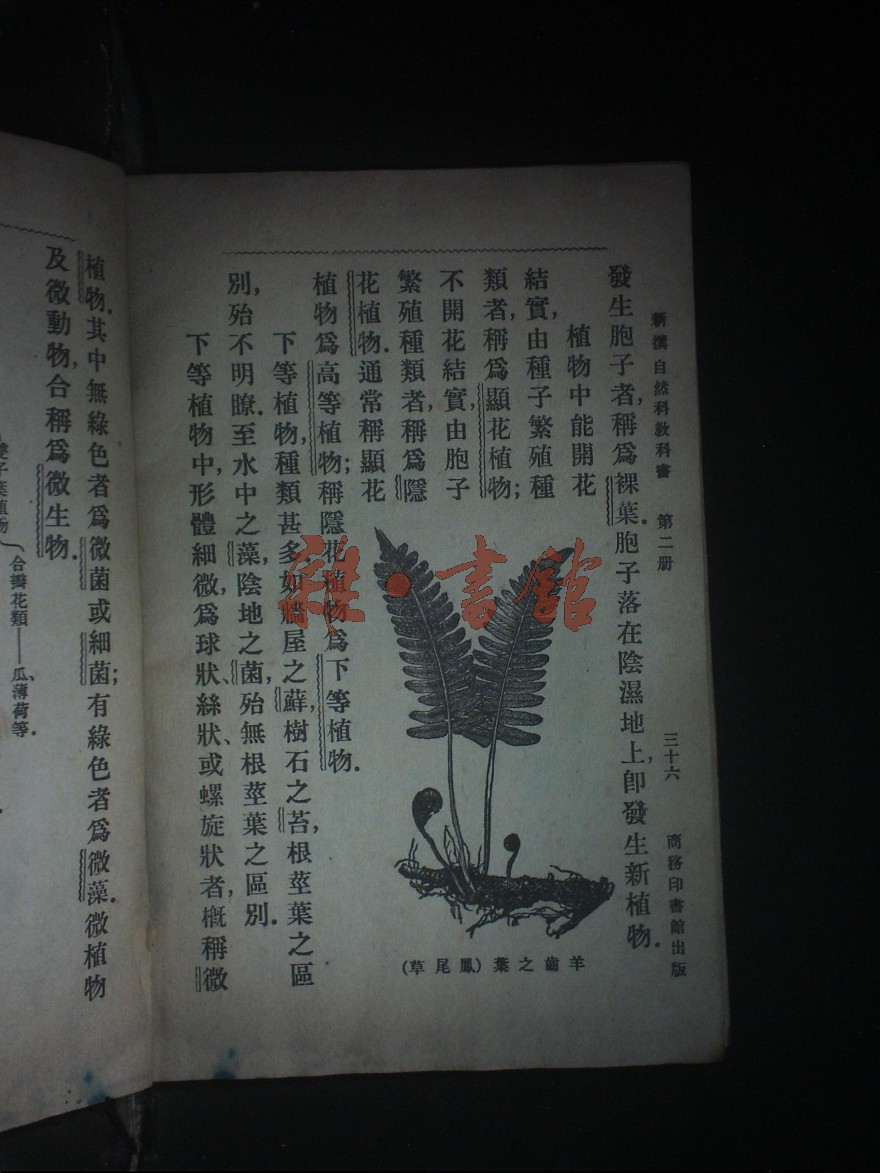 新撰自然科教科書　第二册　三十六　商務印書館出版
發生胞子者，稱爲裸葉．胞子落在陰濕地上，卽發生新植物．
植物中能開花
結實，由種子繁殖種
類者，稱爲顯花植物；
不開花結實，由胞子
繁殖種類者，稱爲隱
花植物．通常稱顯花
植物爲高等植物；稱隱花植物爲下等植物．
下等植物，種類甚多，如牆屋之蘚，樹石之苔，根莖葉之區
別，殆不明瞭．至水中之藻，陰地之菌，殆無根莖葉之區別．
下等植物中，形體細微，爲球狀、絲狀、或螺旋狀者，槪稱微
羊齒之葉（鳳尾草）
雜·書館
植物．其中無綠色者爲微菌或細菌；有綠色者爲微藻．微植物
及微動物，合稱爲微生物．
合瓣花類——瓜、薄荷等．
子葉植物